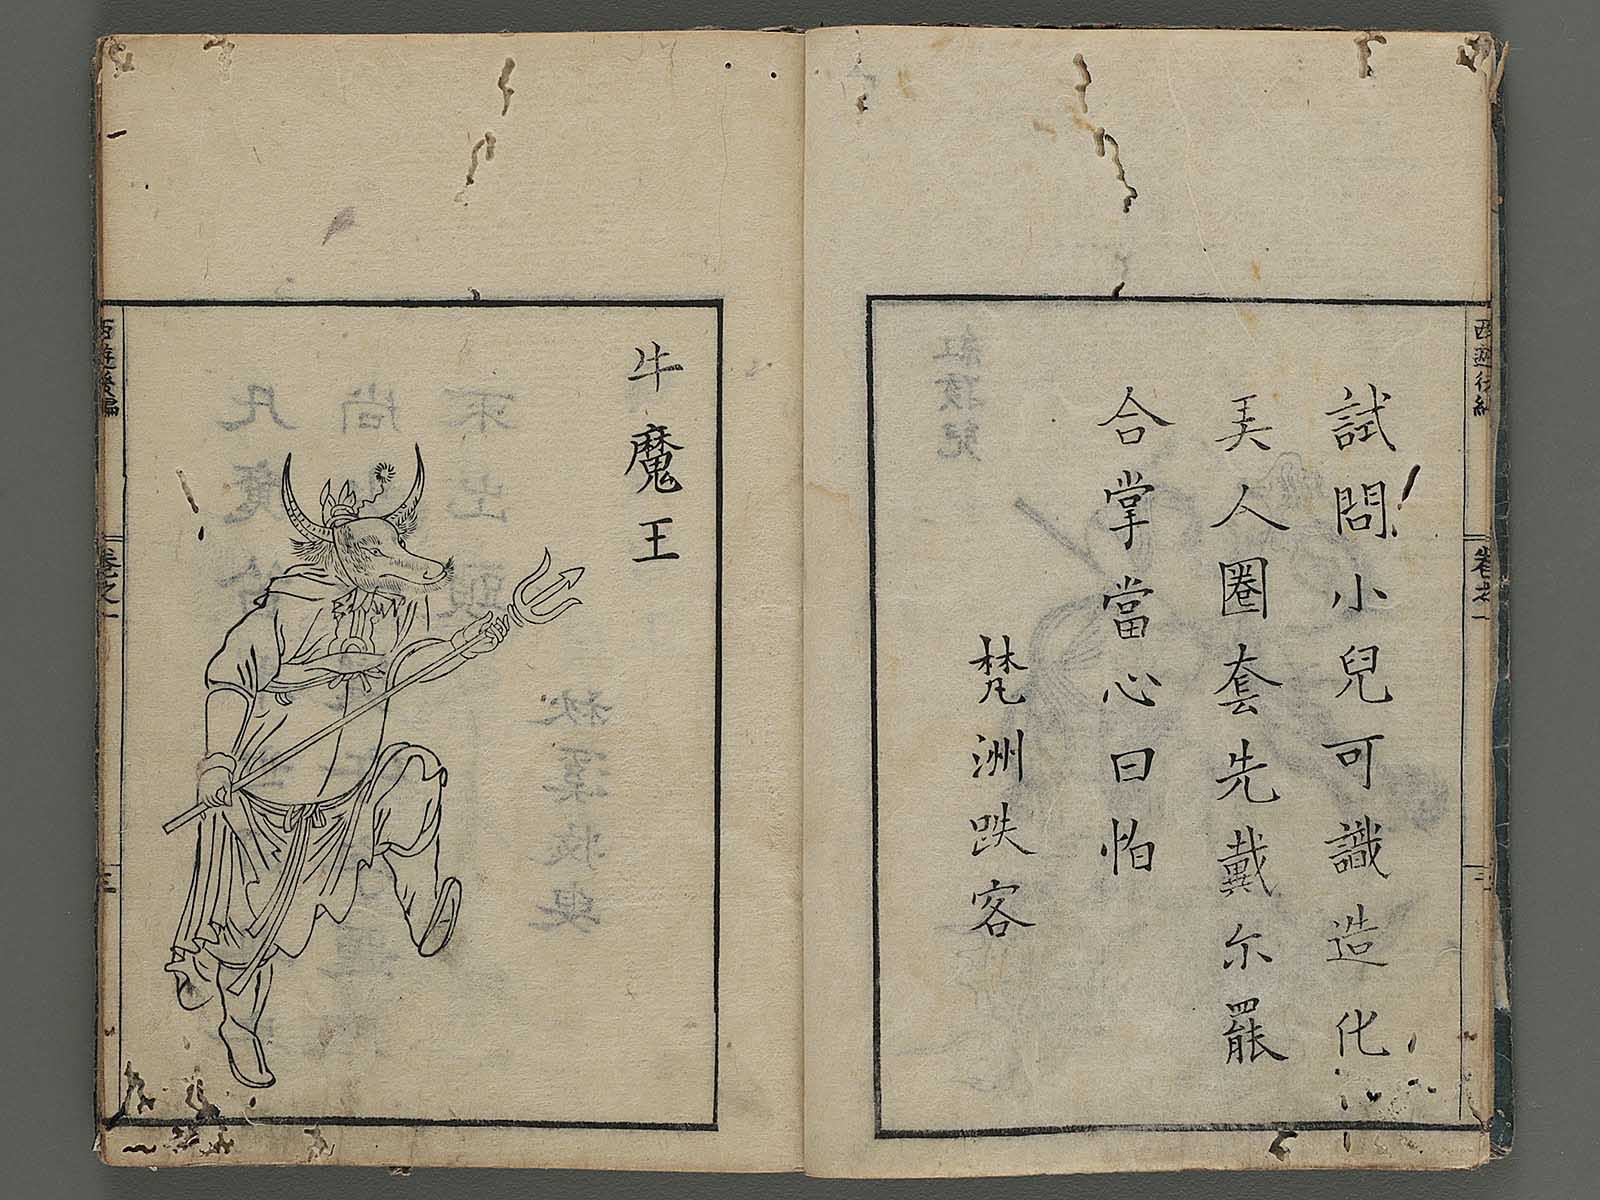 試問小兒可識造化
美人圈套先戴尓罷
合掌當心曰怕
梵洲跌客
西遊後編
卷之一
三
牛魔王
西遊後編
卷之一
三